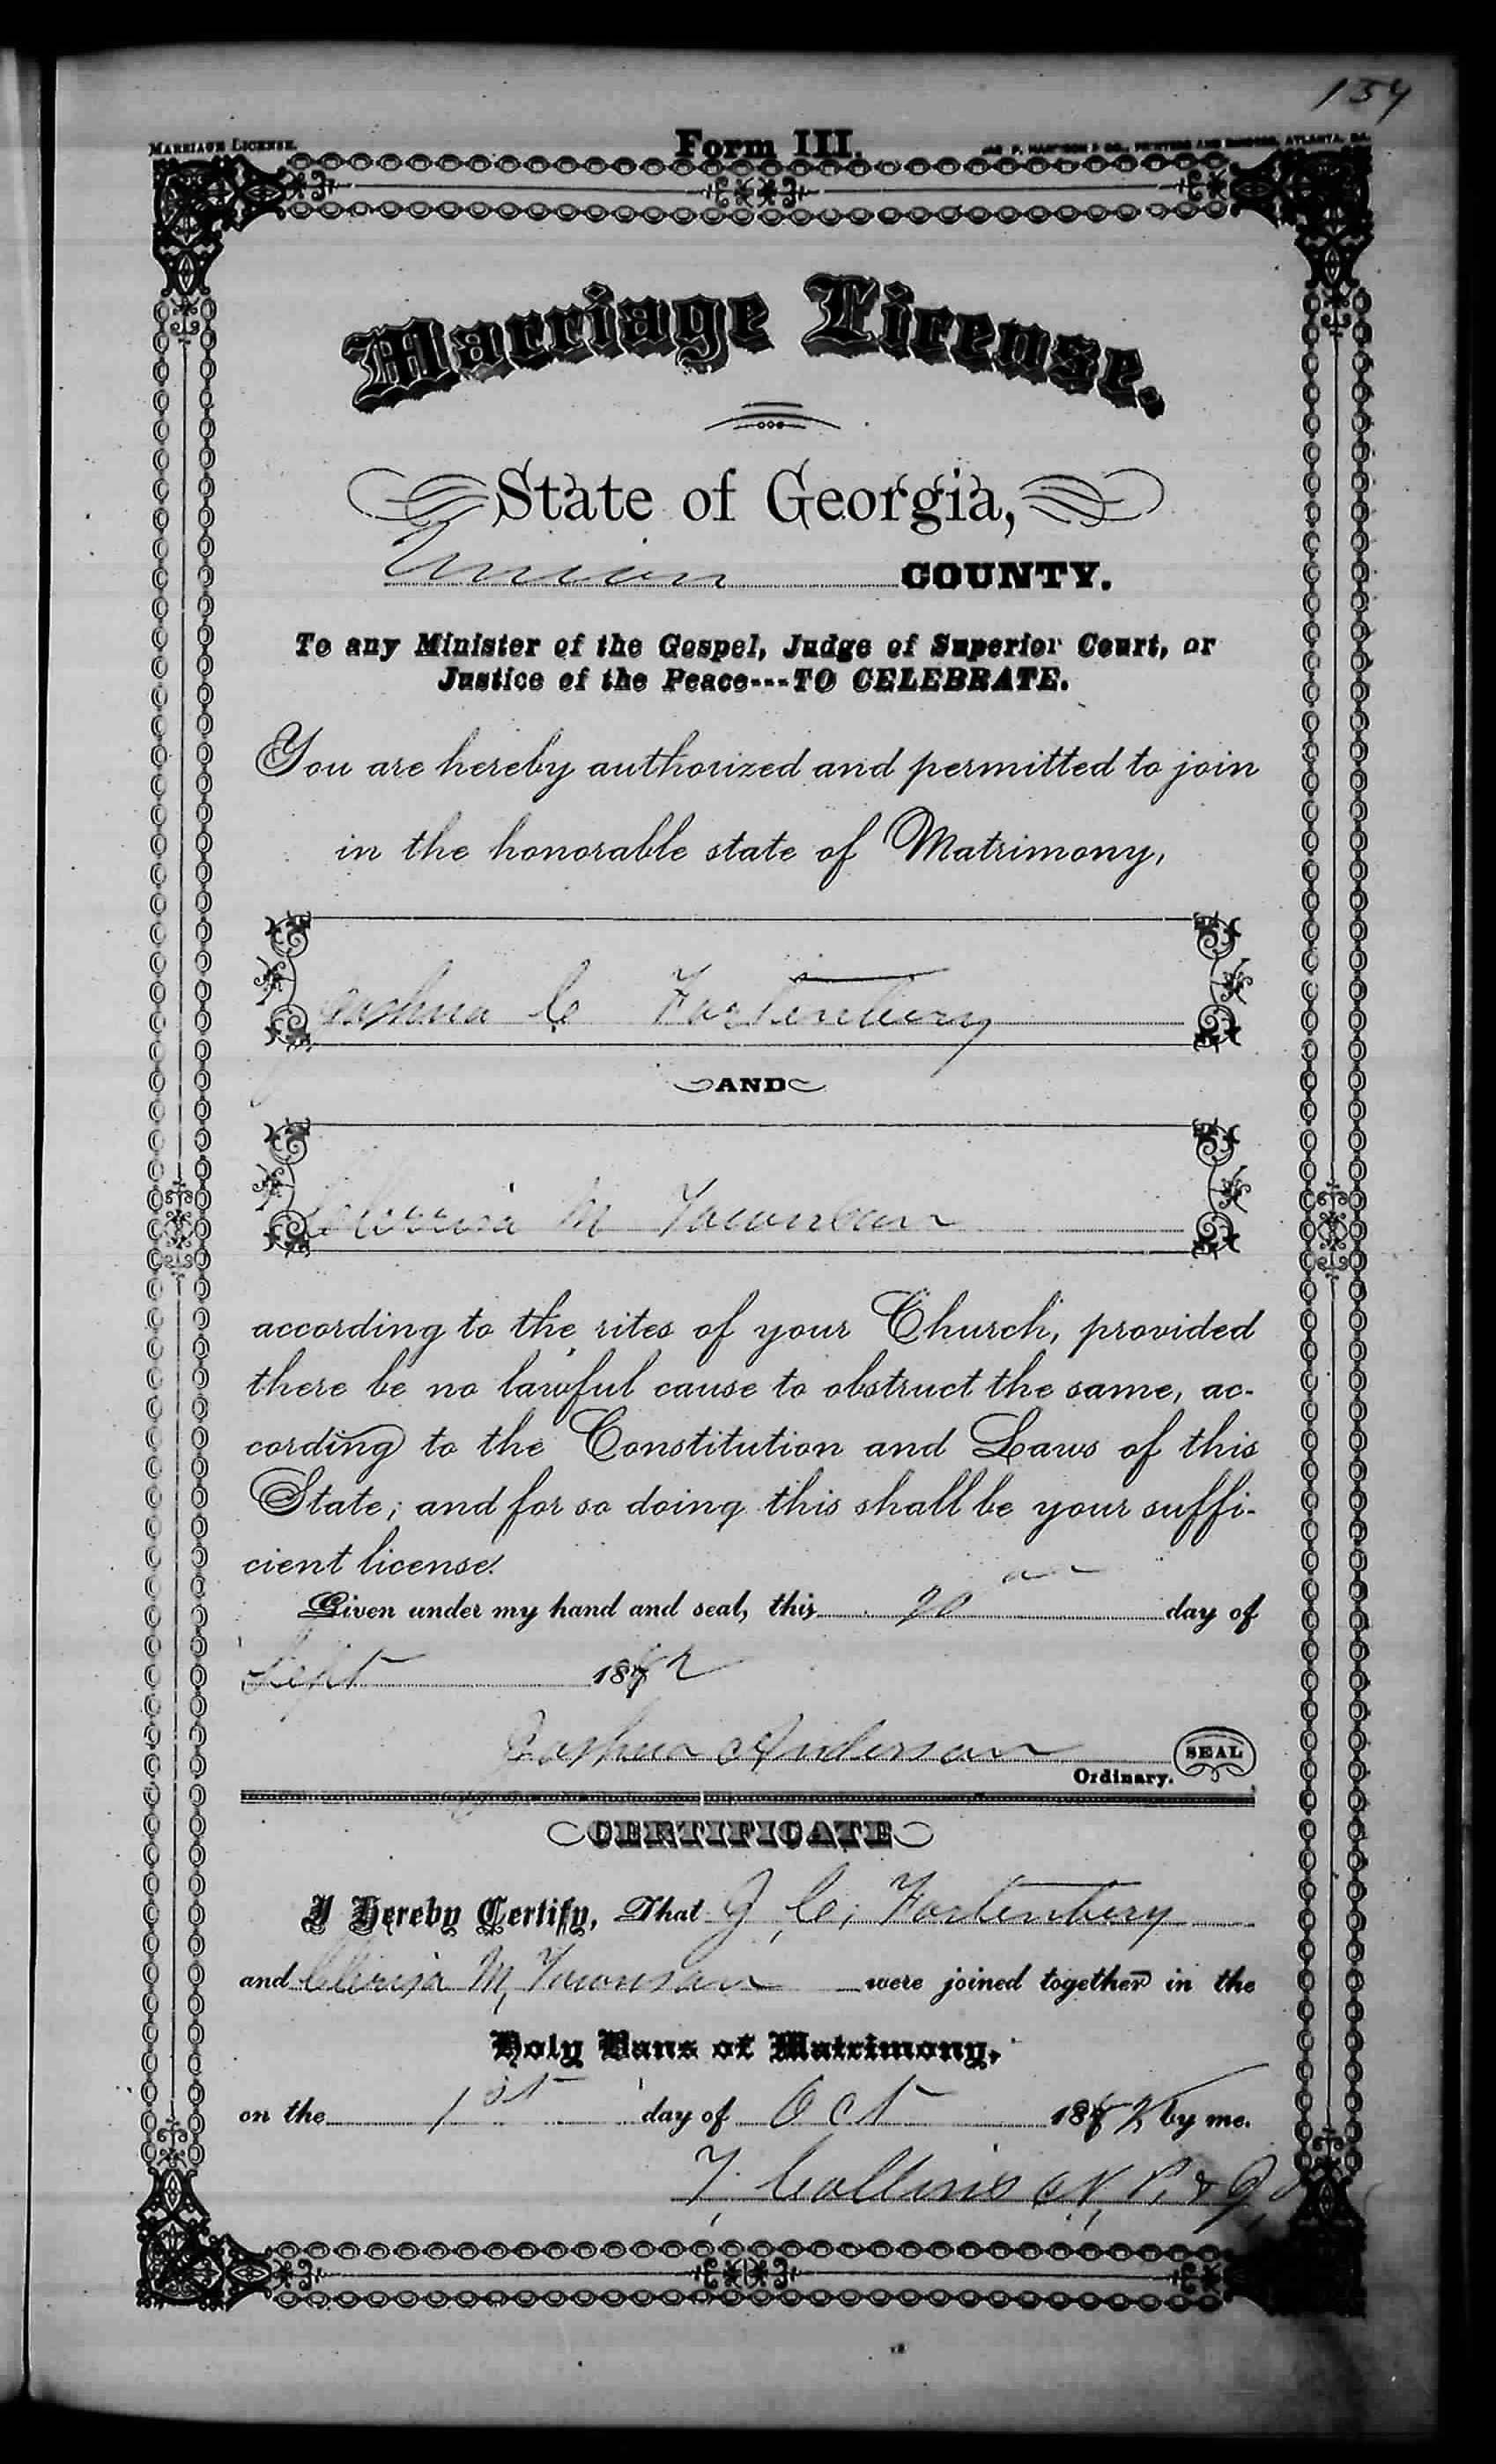 154
MARRIAGE LICENSE.
Form III.
JAS. P. HARRISON & CO., PRINTERS AND BINDERS, ATLANTA, GA.
Marriage License.
State of Georgia,
Union COUNTY.
To any Minister of the Gospel, Judge of Superior Court, or
Justice of the Peace---TO CELEBRATE.
You are hereby authorized and permitted to join
in the honorable state of Matrimony,
Joshua C Fortenbery
AND
M Townson
according to the rites of your Church, provided
there be no lawful cause to obstruct the same, ac-
cording to the Constitution and Laws of this
State; and for so doing this shall be your suffi-
cient license.
Given under my hand and seal, this 20 day of
Sept 1882
Joshua Anderson
SEAL
Ordinary.
CERTIFICATE
I Hereby Certify, That J, C, Fortenbery
and M, Townson were joined together in the
Holy Bans of Matrimony,
on the 1st day of Oct 1882 by me.
T. Collins N, P. & J,